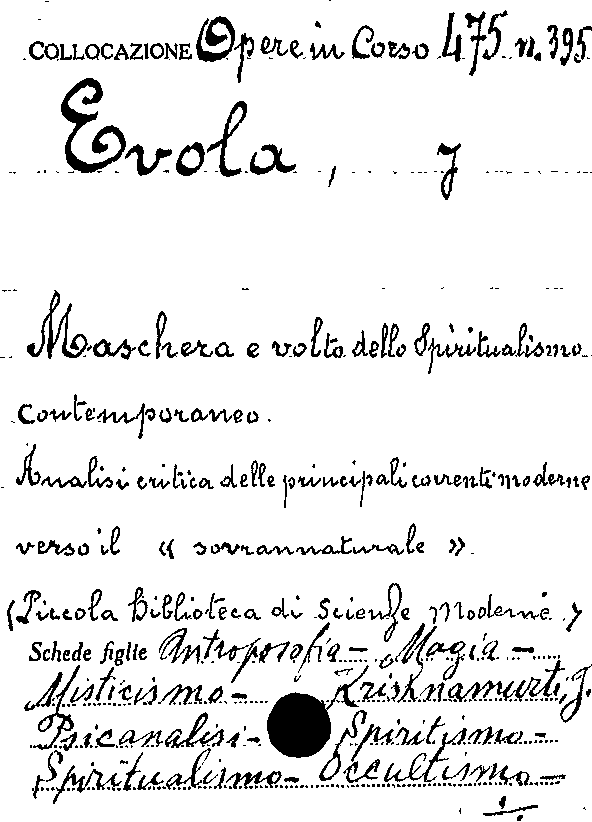 COLLOCAZIONE Opere in Corso 475 n. 395
Evola, J
Maschera e volto dello Spiritualismo
contemporaneo.
Analisi critica delle principali correnti moderne
verso il « sovrannaturale ».
(Piccola Biblioteca di Scienze Moderne)
Schede figlie Antroposofia - Magia -
Misticismo - Krishnamurti, J.
Psicanalisi - Spiritismo -
Spiritualismo - Occultismo -